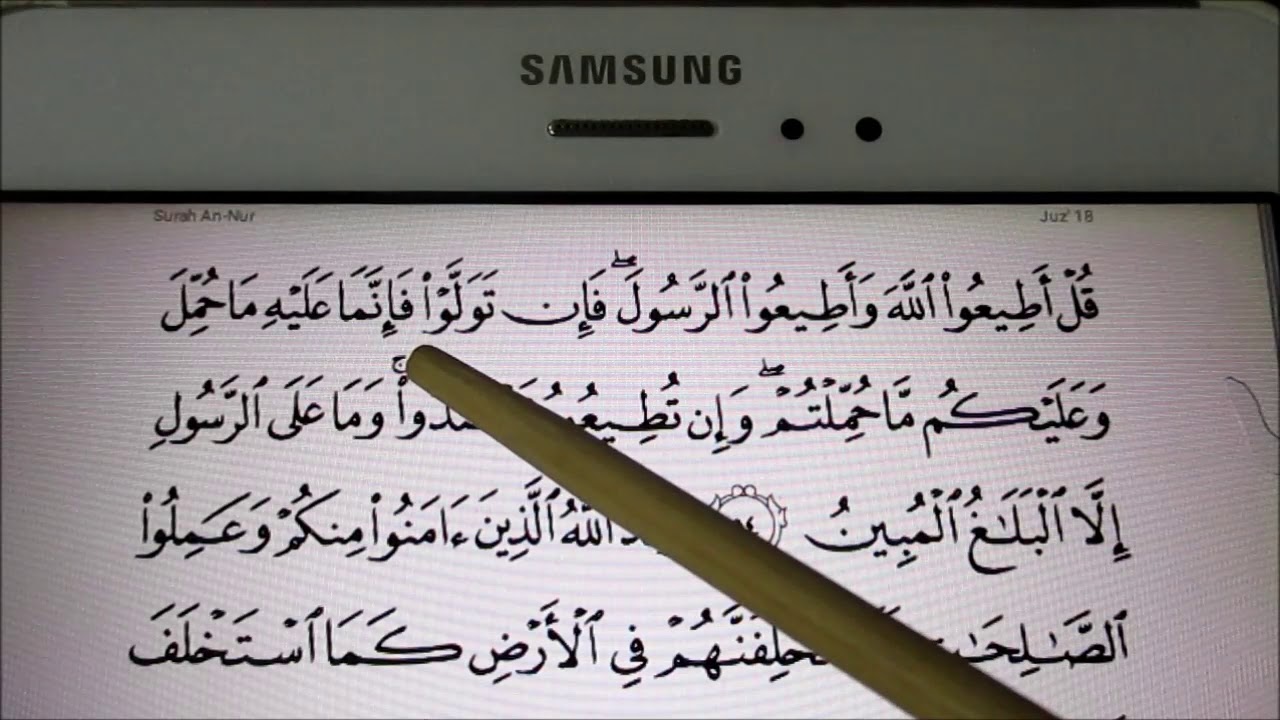 SAMSUNG
Surah An-Nur Juz' 18
قُلْ أَطِيعُوا۟ ٱللَّهَ وَأَطِيعُوا۟ ٱلرَّسُولَ ۖ فَإِن تَوَلَّوْا۟ فَإِنَّمَا عَلَيْهِ مَا حُمِّلَ
وَعَلَيْكُم مَّا حُمِّلْتُمْ ۖ وَإِن وَمَا عَلَى ٱلرَّسُولِ
إِلَّا ٱلْبَلَـٰغُ ٱلْمُبِينُ ٱللَّهُ ٱلَّذِينَ ءَامَنُوا۟ مِنكُمْ وَعَمِلُوا۟
فِى ٱلْأَرْضِ كَمَا ٱسْتَخْلَفَ